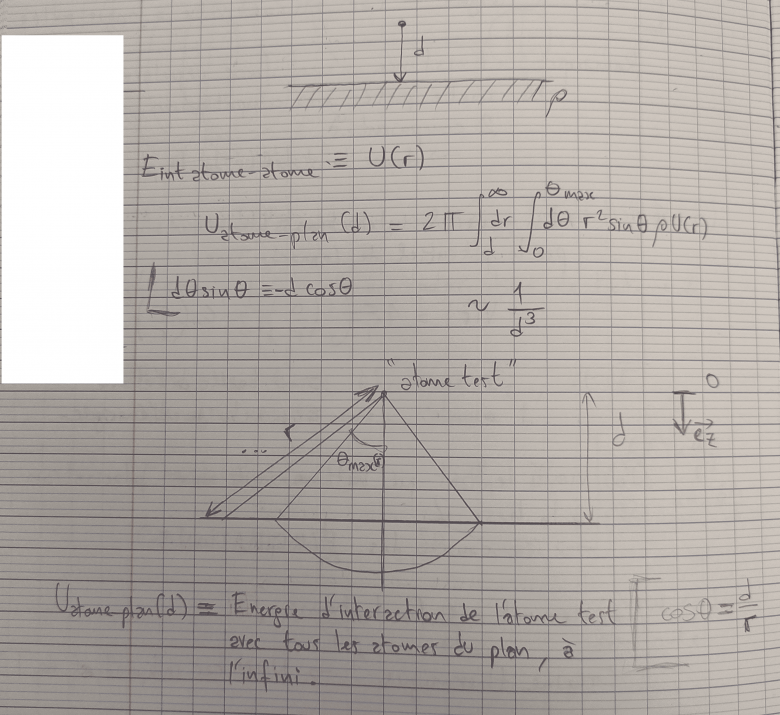 d
ρ
E int atome-atome ≡ U(r)
U atome-plan (d) = 2 π ∫_d^∞ dr ∫_0^θmax dθ r² sinθ ρ U(r)
dθ sinθ ≡ -d cosθ
~ 1/d³
"atome test"
0
... r
d
e⃗z
θmax(r)
U atome plan (d) = Energie d'interaction de l'atome test
cosθ = d/r
avec tous les atomes du plan, à
l'infini.